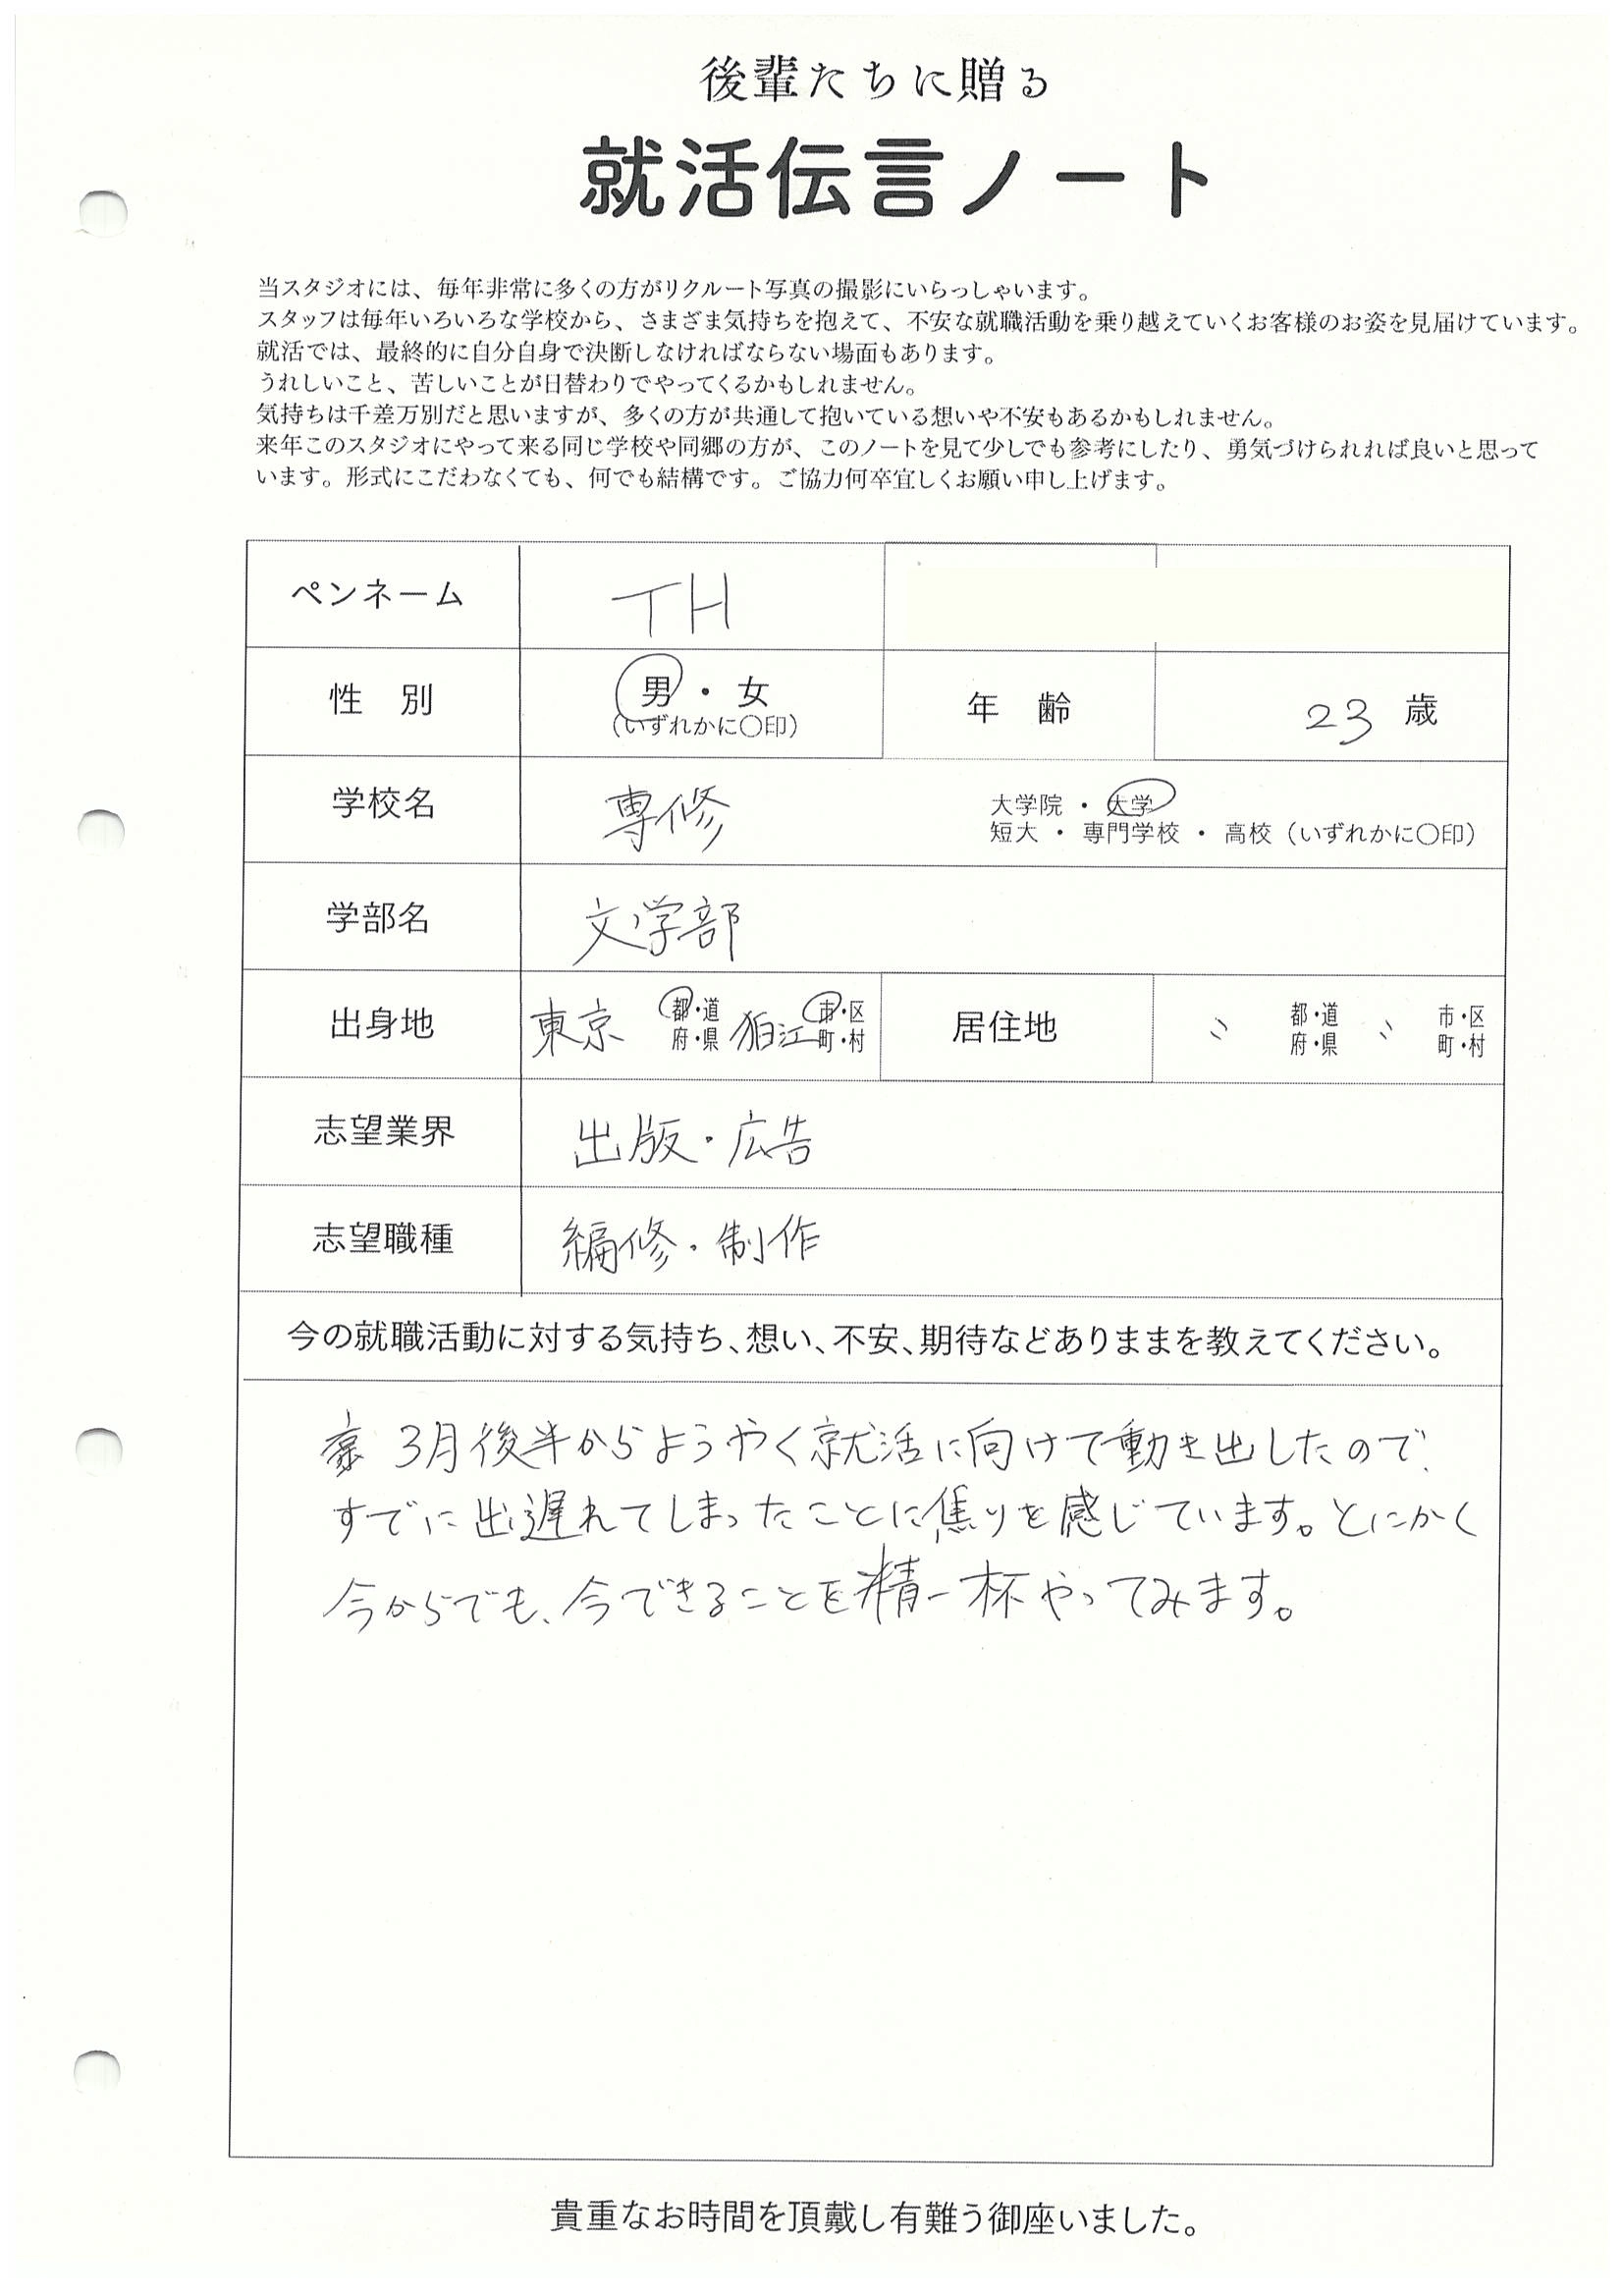 後輩たちに贈る
就活伝言ノート
当スタジオには、毎年非常に多くの方がリクルート写真の撮影にいらっしゃいます。
スタッフは毎年いろいろな学校から、さまざま気持ちを抱えて、不安な就職活動を乗り越えていくお客様のお姿を見届けています。
就活では、最終的に自分自身で決断しなければならない場面もあります。
うれしいこと、苦しいことが日替わりでやってくるかもしれません。
気持ちは千差万別だと思いますが、多くの方が共通して抱いている想いや不安もあるかもしれません。
来年このスタジオにやって来る同じ学校や同郷の方が、このノートを見て少しでも参考にしたり、勇気づけられれば良いと思って
います。形式にこだわなくても、何でも結構です。ご協力何卒宜しくお願い申し上げます。
ペンネーム TH
性 別 男・女 年 齢 23 歳
(いずれかに〇印)
学校名 専修 大学院 ・ 大学
短大 ・ 専門学校 ・ 高校(いずれかに〇印)
学部名 文学部
出身地 東京 都・道 府・県 狛江 市・区 町・村 居住地 〃 都・道 府・県 〃 市・区 町・村
志望業界 出版・広告
志望職種 編修・制作
今の就職活動に対する気持ち、想い、不安、期待などありままを教えてください。
3月後半からようやく就活に向けて動き出したので、
すでに出遅れてしまったことに焦りを感じています。とにかく
今からでも、今できることを精一杯やってみます。
貴重なお時間を頂戴し有難う御座いました。